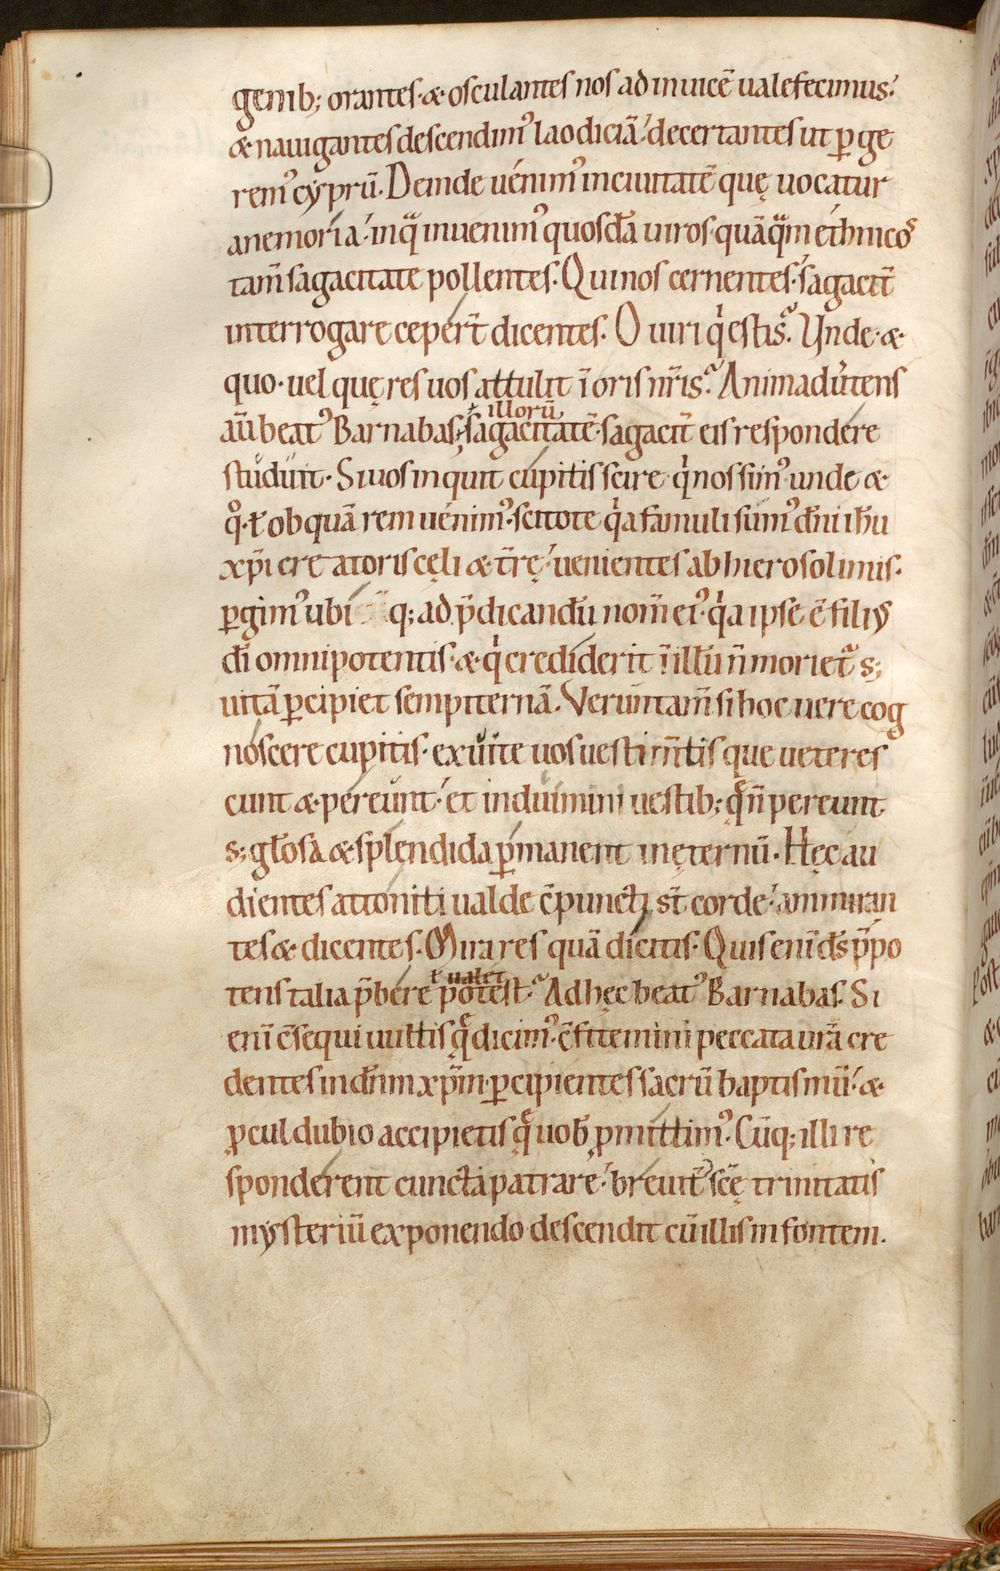 genib; orantes · & · osculantes nos ad inuicē ualefecimus ·
& nauigantes descendim' laodiciā · decertantes ut p̱ ge
rem' cyprū · Deinde uénim' in ciuitatē quę uocatur
anemoria · in qͣ inuenim' quosdā uiros · quāqͣm éthnicos
tam̄ sagacitate pollentes · Qui nos cernentes · sagacit̄
interrogare ceper̄t dicentes · O uiri qͥ estis · Unde · &
quo · uel quę res uos attulit ī oris nr̄is · Animaduͥtens
aū beat' Barnabas · illorū sagacitatē · sagacit̄ eis respondére
studuit · Si uos inquit cupitis scire qͥ nos sim' unde &
qͦ · ł ob quā rem uénim' · scitote qͥa famuli sum' dn̄i ih̄u
xp̄i creatoris cęli & t̄rę · uenientes ab hierosolimis ·
p̱gim' ubi q; ad p̄dicandū nom̄ ei' · qͥa ipse ē filius
dī omnipotentis · & qͥ crediderit ī illū n̄ moriet᷑ s;
uitā p̱cipiet sempiternā · Veruntam̄ si hoc uere cog
noscere cupitis · exuite uos uestim̄tis que ueteres
cunt & · péreunt · et induimini uestib; qͣ n̄ pereunt
s; gl̄osa & splendida p̱manent in ęternū · Hęc au
dientes attoniti ualde c̄puncti st̄ corde · ammiran
tes & dicentes · Mira res quā dicitis · Quis enī ds̄ p̄po
tens talia p̄bére ł ualet potest · Ad hęc beat' Barnabas · Si
enī c̄sequi uultis qͣ dicim' · c̄fitemini peccata urā cre
dentes in dn̄m xp̄m · p̱cipientes sacrū baptismū · &
ꝓcul dubio accipietis qͣ uob̄ ꝓmittim' · Cūq; illi re
sponderent cuncta patrare · breuit̄ sc̄ę trinitatis
mysteriū exponendo descendit cū illis in fontem ·